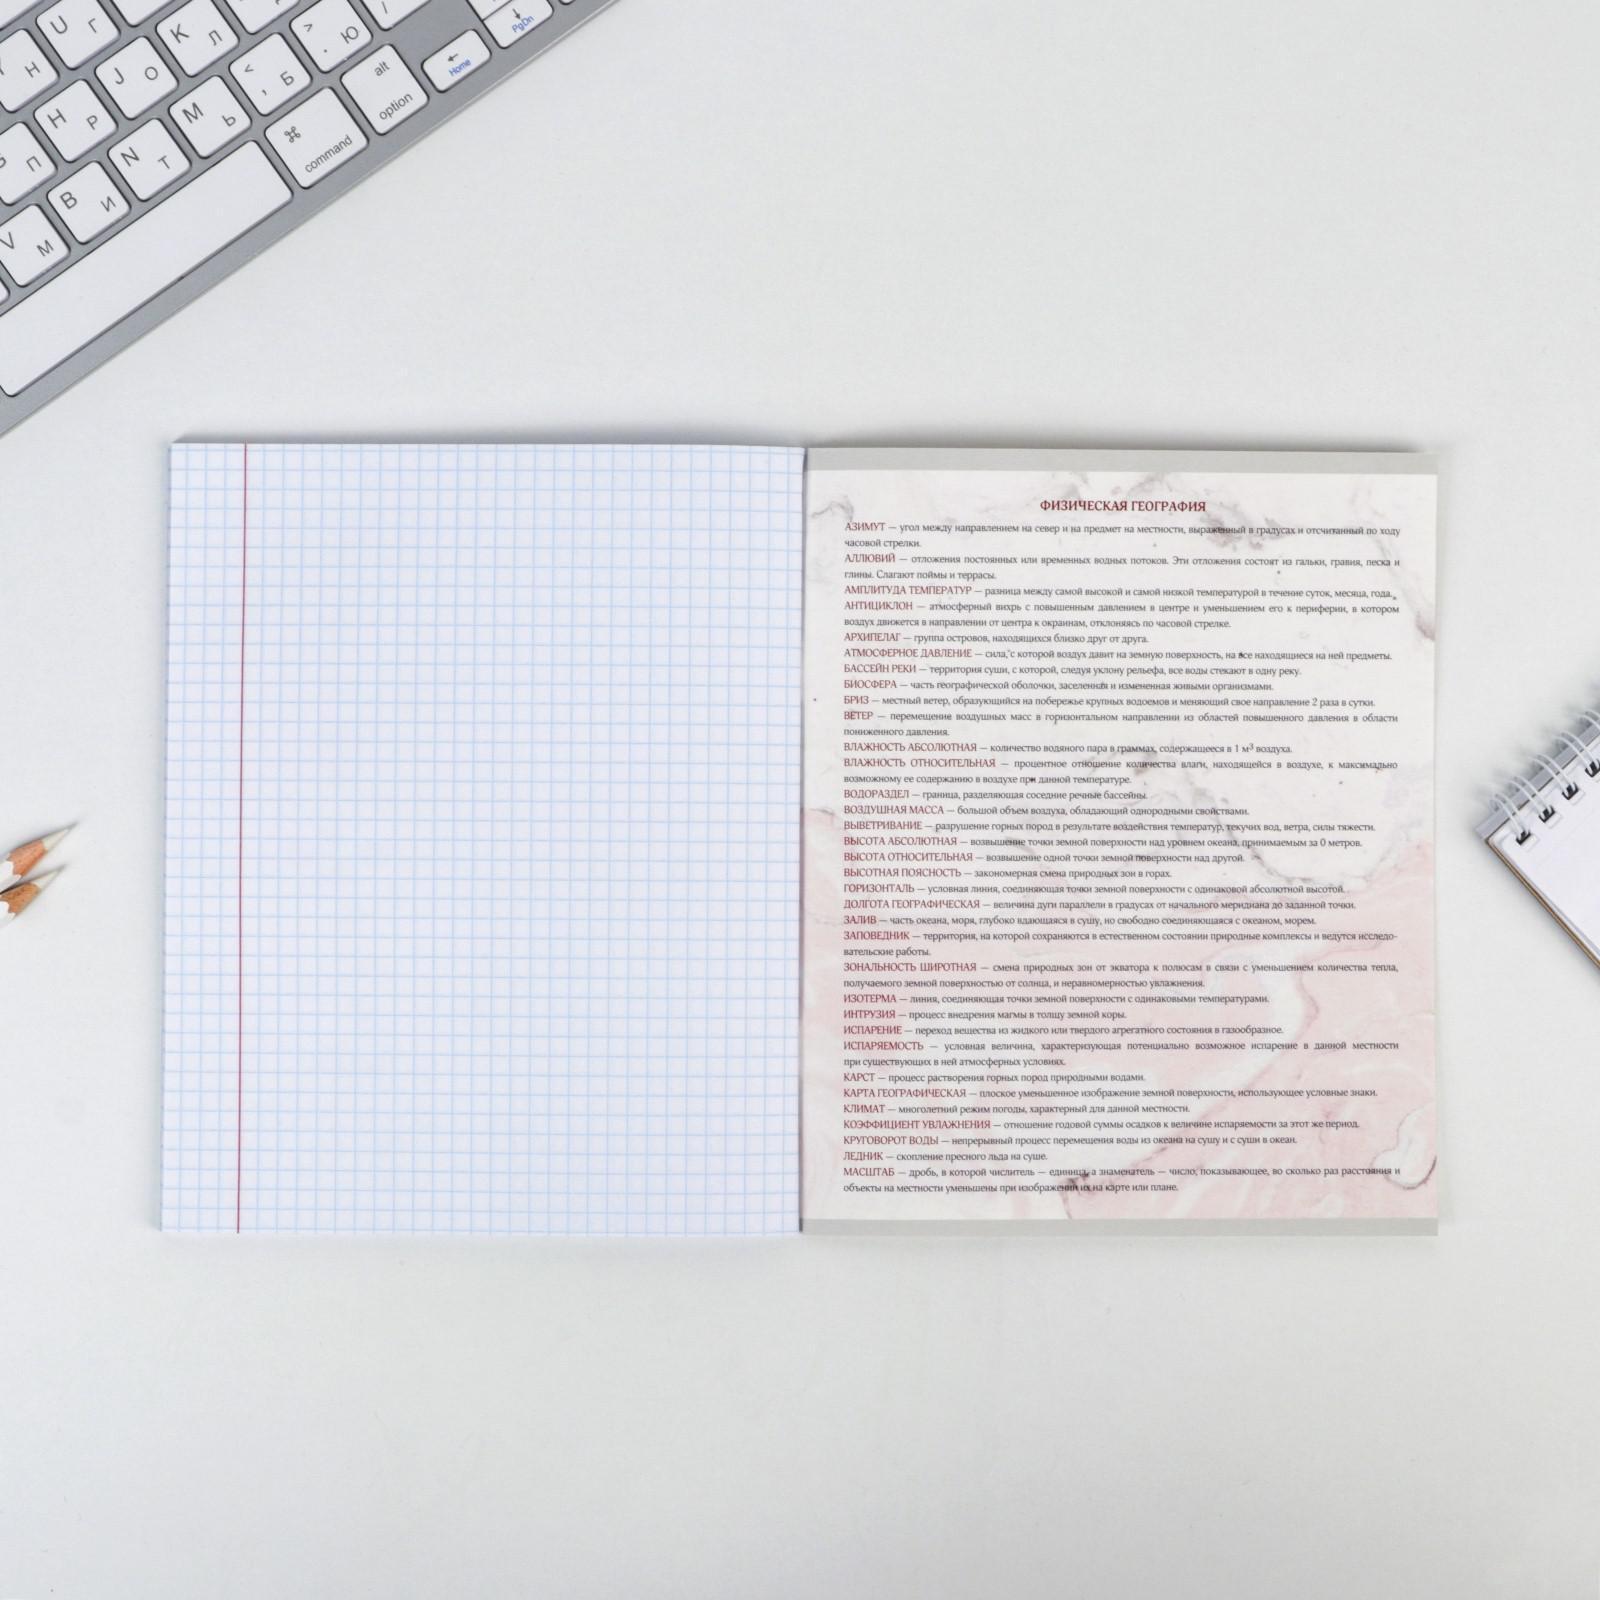 U Г
K Л
> . Ю
/
PgDn
Y Н
J О
< , Б
alt option
← Home
H Р
M Ь
⌘ command
П
N Т
B И
V М
ФИЗИЧЕСКАЯ ГЕОГРАФИЯ
АЗИМУТ — угол между направлением на север и на предмет на местности, выраженный в градусах и отсчитанный по ходу
часовой стрелки.
АЛЛЮВИЙ — отложения постоянных или временных водных потоков. Эти отложения состоят из гальки, гравия, песка и
глины. Слагают поймы и террасы.
АМПЛИТУДА ТЕМПЕРАТУР — разница между самой высокой и самой низкой температурой в течение суток, месяца, года.
АНТИЦИКЛОН — атмосферный вихрь с повышенным давлением в центре и уменьшением его к периферии, в котором
воздух движется в направлении от центра к окраинам, отклоняясь по часовой стрелке.
АРХИПЕЛАГ — группа островов, находящихся близко друг от друга.
АТМОСФЕРНОЕ ДАВЛЕНИЕ — сила, с которой воздух давит на земную поверхность, на все находящиеся на ней предметы.
БАССЕЙН РЕКИ — территория суши, с которой, следуя уклону рельефа, все воды стекают в одну реку.
БИОСФЕРА — часть географической оболочки, заселенная и измененная живыми организмами.
БРИЗ — местный ветер, образующийся на побережье крупных водоемов и меняющий свое направление 2 раза в сутки.
ВЕТЕР — перемещение воздушных масс в горизонтальном направлении из областей повышенного давления в области
пониженного давления.
ВЛАЖНОСТЬ АБСОЛЮТНАЯ — количество водяного пара в граммах, содержащееся в 1 м³ воздуха.
ВЛАЖНОСТЬ ОТНОСИТЕЛЬНАЯ — процентное отношение количества влаги, находящейся в воздухе, к максимально
возможному ее содержанию в воздухе при данной температуре.
ВОДОРАЗДЕЛ — граница, разделяющая соседние речные бассейны.
ВОЗДУШНАЯ МАССА — большой объем воздуха, обладающий однородными свойствами.
ВЫВЕТРИВАНИЕ — разрушение горных пород в результате воздействия температур, текучих вод, ветра, силы тяжести.
ВЫСОТА АБСОЛЮТНАЯ — возвышение точки земной поверхности над уровнем океана, принимаемым за 0 метров.
ВЫСОТА ОТНОСИТЕЛЬНАЯ — возвышение одной точки земной поверхности над другой.
ВЫСОТНАЯ ПОЯСНОСТЬ — закономерная смена природных зон в горах.
ГОРИЗОНТАЛЬ — условная линия, соединяющая точки земной поверхности с одинаковой абсолютной высотой.
ДОЛГОТА ГЕОГРАФИЧЕСКАЯ — величина дуги параллели в градусах от начального меридиана до заданной точки.
ЗАЛИВ — часть океана, моря, глубоко вдающаяся в сушу, но свободно соединяющаяся с океаном, морем.
ЗАПОВЕДНИК — территория, на которой сохраняются в естественном состоянии природные комплексы и ведутся исследо-
вательские работы.
ЗОНАЛЬНОСТЬ ШИРОТНАЯ — смена природных зон от экватора к полюсам в связи с уменьшением количества тепла,
получаемого земной поверхностью от солнца, и неравномерностью увлажнения.
ИЗОТЕРМА — линия, соединяющая точки земной поверхности с одинаковыми температурами.
ИНТРУЗИЯ — процесс внедрения магмы в толщу земной коры.
ИСПАРЕНИЕ — переход вещества из жидкого или твердого агрегатного состояния в газообразное.
ИСПАРЯЕМОСТЬ — условная величина, характеризующая потенциально возможное испарение в данной местности
при существующих в ней атмосферных условиях.
КАРСТ — процесс растворения горных пород природными водами.
КАРТА ГЕОГРАФИЧЕСКАЯ — плоское уменьшенное изображение земной поверхности, использующее условные знаки.
КЛИМАТ — многолетний режим погоды, характерный для данной местности.
КОЭФФИЦИЕНТ УВЛАЖНЕНИЯ — отношение годовой суммы осадков к величине испаряемости за этот же период.
КРУГОВОРОТ ВОДЫ — непрерывный процесс перемещения воды из океана на сушу и с суши в океан.
ЛЕДНИК — скопление пресного льда на суше.
МАСШТАБ — дробь, в которой числитель — единица, а знаменатель — число, показывающее, во сколько раз расстояния и
объекты на местности уменьшены при изображении их на карте или плане.